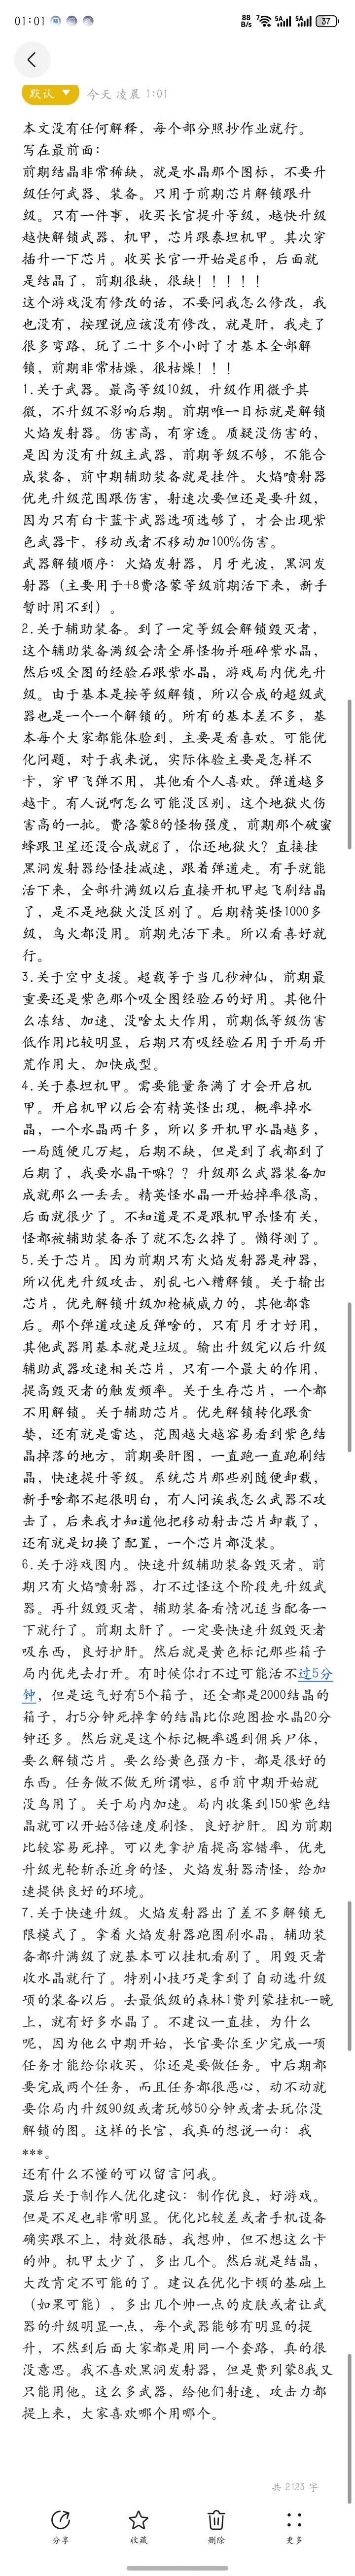 01:01
88 B/s
7
5A
5A
37
默认
今天 凌晨 1:01
本文没有任何解释，每个部分照抄作业就行。
写在最前面：
前期结晶非常稀缺，就是水晶那个图标，不要升
级任何武器、装备。只用于前期芯片解锁跟升
级。只有一件事，收买长官提升等级，越快升级
越快解锁武器，机甲，芯片跟泰坦机甲。其次穿
插升一下芯片。收买长官一开始是g币，后面就
是结晶了，前期很缺，很缺！！！！！
这个游戏没有修改的话，不要问我怎么修改，我
也没有，按理说应该没有修改，就是肝，我走了
很多弯路，玩了二十多个小时了才基本全部解
锁，前期非常枯燥，很枯燥！！！
1.关于武器。最高等级10级，升级作用微乎其
微，不升级不影响后期。前期唯一目标就是解锁
火焰发射器。伤害高，有穿透。质疑没伤害的，
是因为没有升级主武器，前期等级不够，不能合
成装备，前中期辅助装备就是挂件。火焰喷射器
优先升级范围跟伤害，射速次要但还是要升级，
因为只有白卡蓝卡武器选项选够了，才会出现紫
色武器卡，移动或者不移动加100%伤害。
武器解锁顺序：火焰发射器，月牙光波，黑洞发
射器（主要用于+8费洛蒙等级前期活下来，新手
暂时用不到）。
2.关于辅助装备。到了一定等级会解锁毁灭者，
这个辅助装备满级会清全屏怪物并砸碎紫水晶，
然后吸全图的经验石跟紫水晶，游戏局内优先升
级。由于基本是按等级解锁，所以合成的超级武
器也是一个一个解锁的。所有的基本差不多，基
本每个大家都能体验到，主要是看喜欢。可能优
化问题，对于我来说，实际体验主要是怎样不
卡，穿甲飞弹不用，其他看个人喜欢。弹道越多
越卡。有人说啊怎么可能没区别，这个地狱火伤
害高的一批。费洛蒙8的怪物强度，前期那个破蜜
蜂跟卫星还没合成就g了，你还地狱火？直接挂
黑洞发射器给怪挂减速，跟着弹道走。有手就能
活下来，全部升满级以后直接开机甲起飞刷结晶
了，是不是地狱火没区别了。后期精英怪1000多
级，鸟火都没用。前期先活下来。所以看喜好就
行。
3.关于空中支援。超载等于当几秒神仙，前期最
重要还是紫色那个吸全图经验石的好用。其他什
么冻结、加速、没啥太大作用，前期低等级伤害
低作用比较明显，后期只有吸经验石用于开局开
荒作用大，加快成型。
4.关于泰坦机甲。需要能量条满了才会开启机
甲。开启机甲以后会有精英怪出现，概率掉水
晶，一个水晶两千多，所以多开机甲水晶越多，
一局随便几万起，后期不缺，但是到了我都到了
后期了，我要水晶干嘛？？升级那么武器装备加
成就那么一丢丢。精英怪水晶一开始掉率很高，
后面就很少了。不知道是不是跟机甲杀怪有关，
怪都被辅助装备杀了就不怎么掉了。懒得测了。
5.关于芯片。因为前期只有火焰发射器是神器，
所以优先升级攻击，别乱七八糟解锁。关于输出
芯片，优先解锁升级加枪械威力的，其他都靠
后。那个弹道攻速反弹啥的，只有月牙才好用，
其他武器用基本就是垃圾。输出升级完以后升级
辅助武器攻速相关芯片，只有一个最大的作用，
提高毁灭者的触发频率。关于生存芯片，一个都
不用解锁。关于辅助芯片。优先解锁转化跟贪
婪，还有就是雷达，范围越大越容易看到紫色结
晶掉落的地方，前期要肝图，一直跑一直跑刷结
晶，快速提升等级。系统芯片那些别随便卸载，
新手啥都不起很明白，有人问诶我怎么武器不攻
击了，后来我才知道他把移动射击芯片卸载了，
还有就是切换了配置，一个芯片都没装。
6.关于游戏图内。快速升级辅助装备毁灭者。前
期只有火焰喷射器，打不过怪这个阶段先升级武
器。再升级毁灭者，辅助装备看情况适当配备一
下就行了。前期太肝了。一定要快速升级毁灭者
吸东西，良好护肝。然后就是黄色标记那些箱子
局内优先去打开。有时候你打不过可能活不过5分
钟，但是运气好有5个箱子，还全都是2000结晶的
箱子，打5分钟死掉拿的结晶比你跑图捡水晶20分
钟还多。然后就是这个标记概率遇到佣兵尸体，
要么解锁芯片。要么给黄色强力卡，都是很好的
东西。任务做不做无所谓啦，g币前中期开始就
没鸟用了。关于局内加速。局内收集到150紫色结
晶就可以开始3倍速度刷怪，良好护肝。因为前期
比较容易死掉。可以先拿护盾提高容错率，优先
升级光轮斩杀近身的怪，火焰发射器清怪，给加
速提供良好的环境。
7.关于快速升级。火焰发射器出了差不多解锁无
限模式了。拿着火焰发射器跑图刷水晶，辅助装
备都升满级了就基本可以挂机看刷了。用毁灭者
收水晶就行了。特别小技巧是拿到了自动选升级
项的装备以后。去最低级的森林1费列蒙挂机一晚
上，就有好多水晶了。不建议一直挂，为什么
呢，因为他么中期开始，长官要你至少完成一项
任务才能给你收买，你还是要做任务。中后期都
要完成两个任务，而且任务都很恶心，动不动就
要你局内升级90级或者玩够50分钟或者去玩你没
解锁的图。这样的长官，我真的想说一句：我
***。
还有什么不懂的可以留言问我。
最后关于制作人优化建议：制作优良，好游戏。
但是不足也非常明显。优化比较差或者手机设备
确实跟不上，特效很酷，我想帅，但不想这么卡
的帅。机甲太少了，多出几个。然后就是结晶，
大改肯定不可能的了。建议在优化卡顿的基础上
（如果可能），多出几个帅一点的皮肤或者让武
器的升级明显一点，每个武器能够有明显的提
升，不然到后面大家都是用同一个套路，真的很
没意思。我不喜欢黑洞发射器，但是费列蒙8我又
只能用他。这么多武器，给他们射速，攻击力都
提上来，大家喜欢哪个用哪个。
共 2123 字
分享
收藏
删除
更多